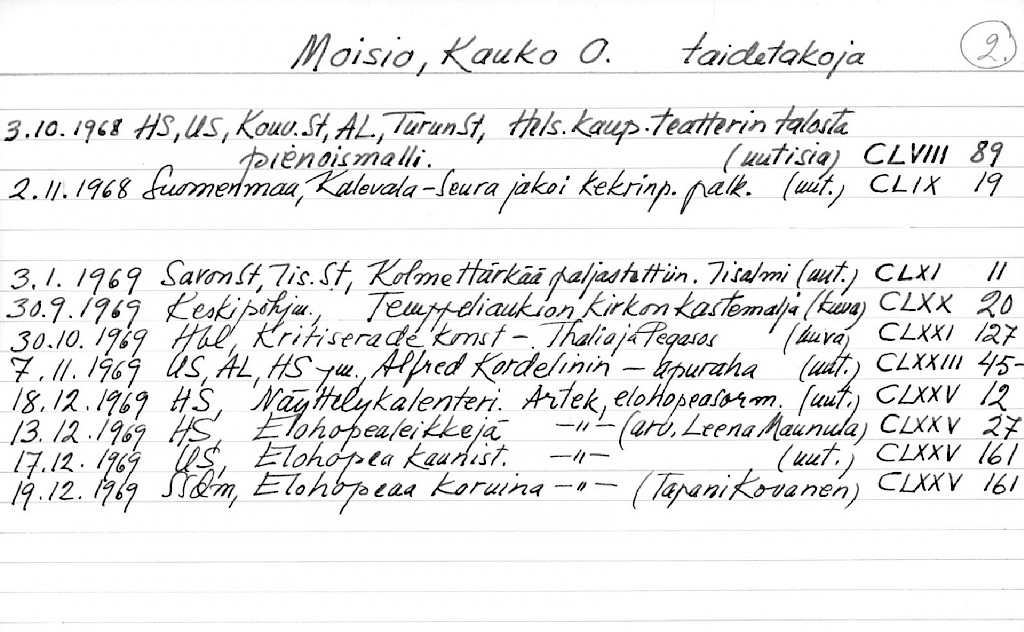 Moisio, Kauko O. taidetakoja 2.
3.10.1968 HS, US, Kouv.St, AL, TurunSt, Hels.kaup.teatterin talosta
pienoismalli. (uutisia) CLVIII 89
2.11.1968 Suomenmaa, Kalevala-Seura jakoi Kekrinp. palk. (uut.) CLIX 19
3.1.1969 SavonSt, Iis.St, Kolme Härkää paljastettiin. Iisalmi (uut.) CLXI 11
30.9.1969 Keskipohjm., Temppeliaukion kirkon kastemalja (kuva) CLXX 20
30.10.1969 Hbl, Kritiserade konst -. Thalia ja Pegasos (kuva) CLXXI 127
7.11.1969 US, AL, HS ym., Alfred Kordelinin - apuraha (uut.) CLXXIII 45-
18.12.1969 HS, Näyttelykalenteri. Artek, elohopeasorm. (uut.) CLXXV 12
13.12.1969 HS, Elohopealeikkejä -"- (arv. Leena Maunula) CLXXV 27
17.12.1969 US, Elohopea kaunist. -"- (uut.) CLXXV 161
19.12.1969 SSdm, Elohopeaa koruina -"- (Tapani Kovanen) CLXXV 161